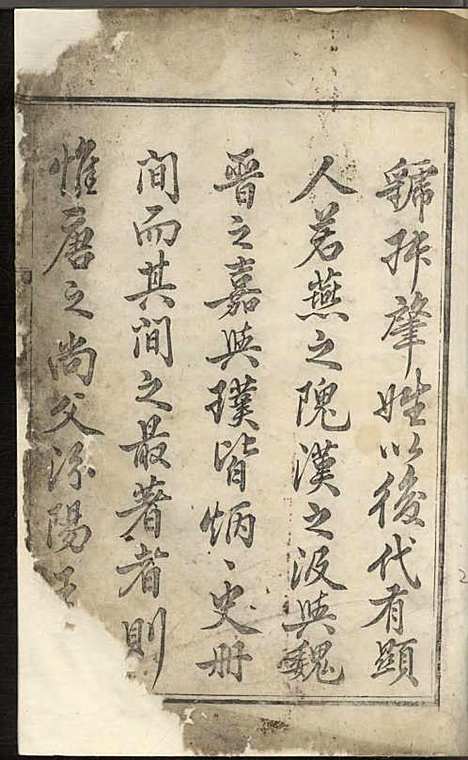 號叔肇姓以後代有顯
人若燕之隗漢之汲與魏
晋之嘉與璞皆炳、史册
间而其间之最著者則
惟唐之尚父汾陽王